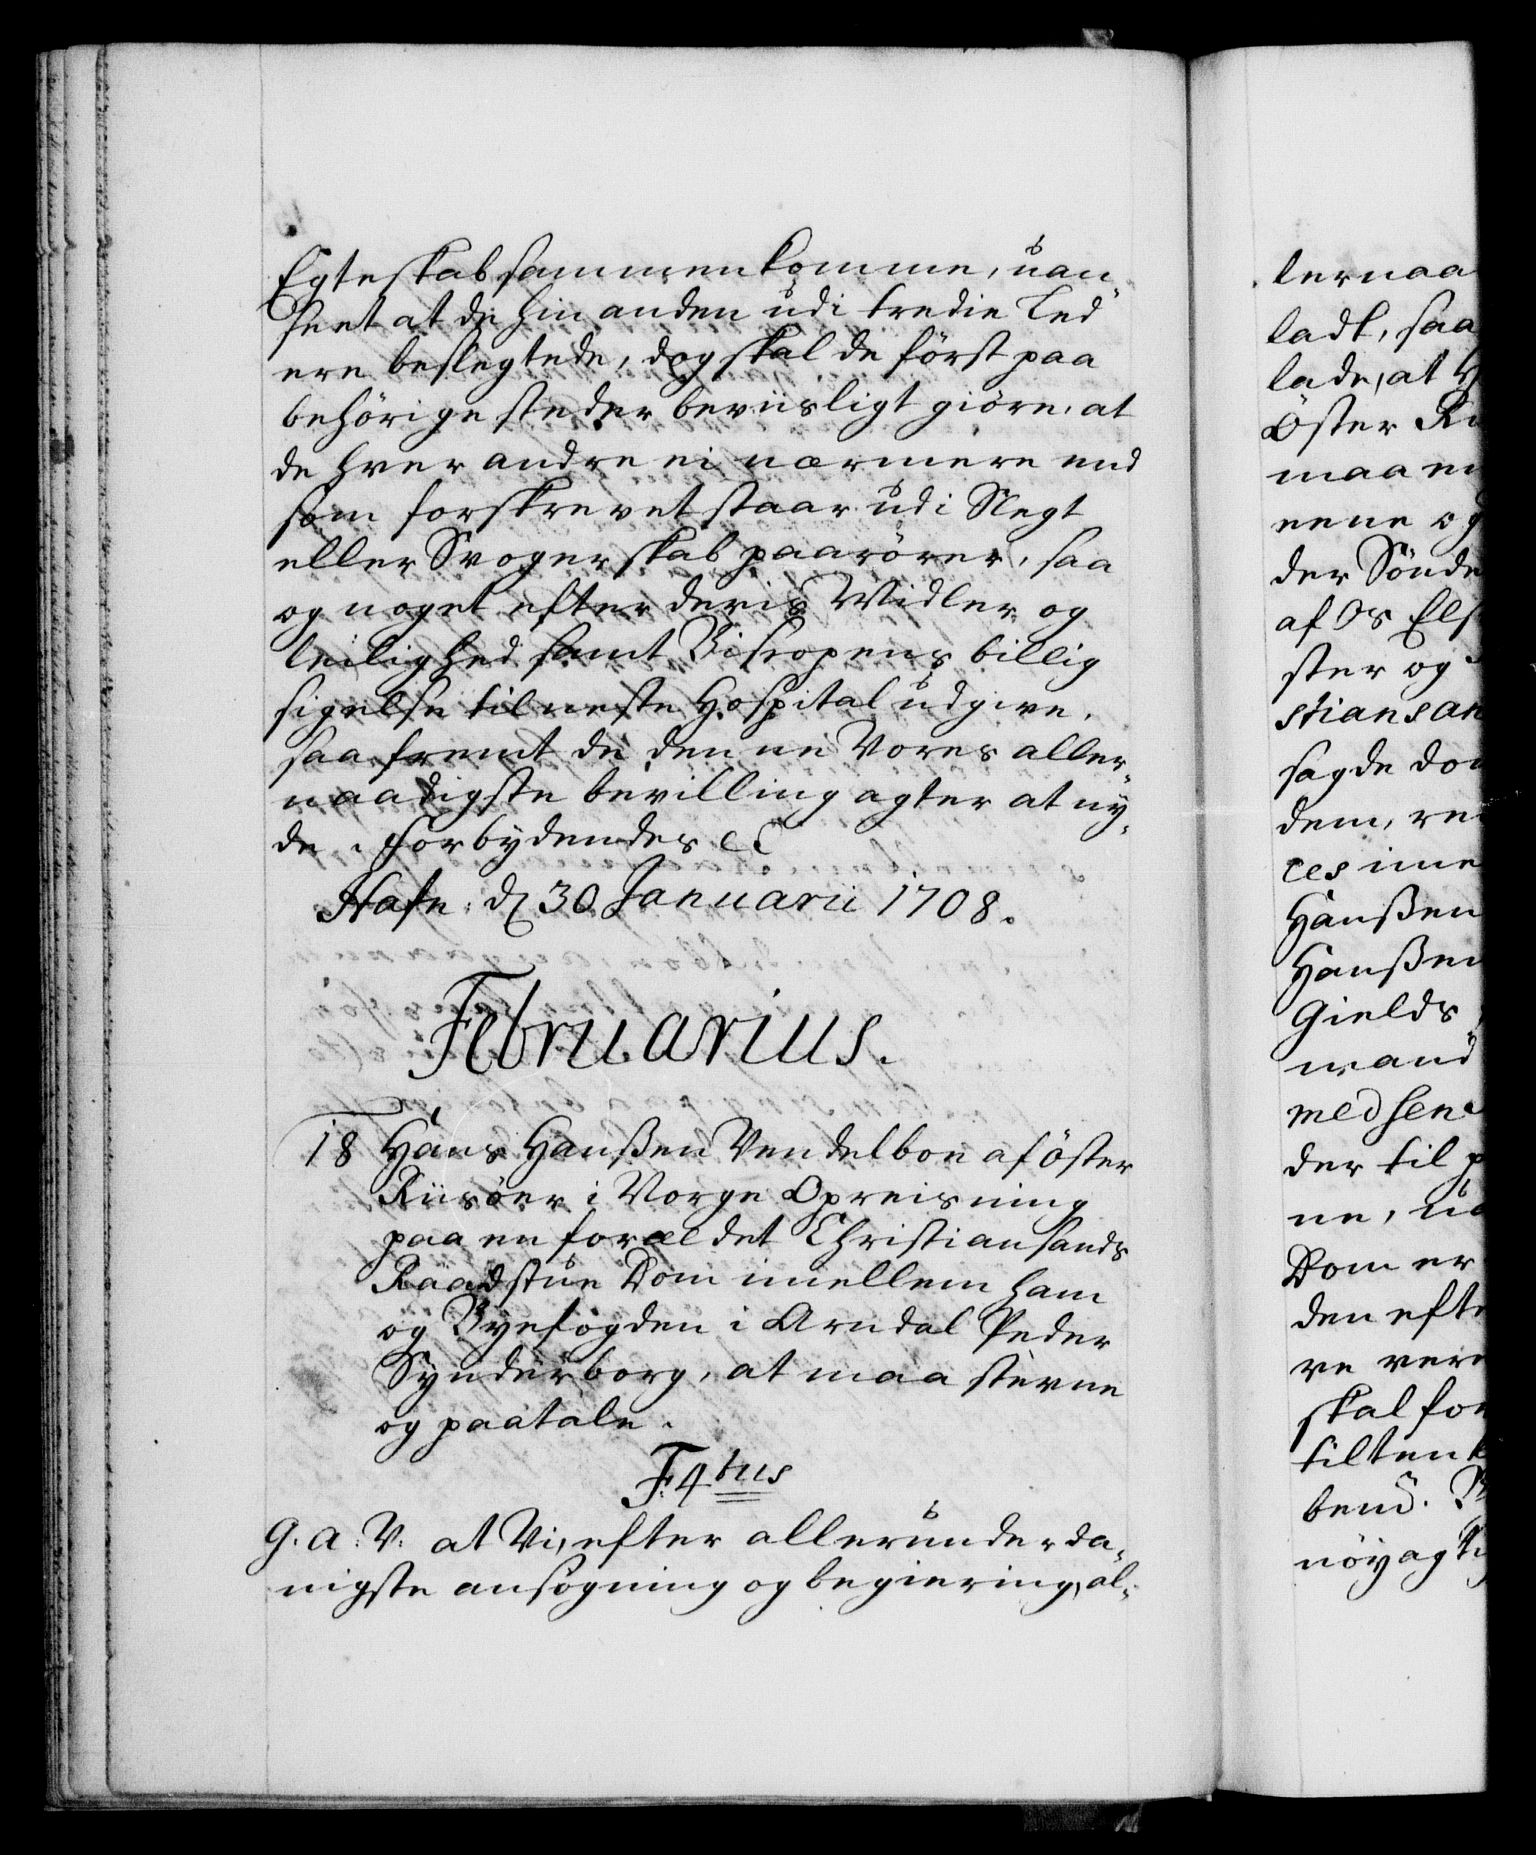 Egteskab sammenkomme, uan¬
seet at de hin anden udi tredie Led
ere beslegtede, dog skal de först paa
behörige steder beviisligt giöre, at
de hver andre ei nærmere end
som forskrevet staar udi Slegt
eller Svogerskab paarörer, saa
og noget efter deris Midler og
leilighed samt Bischopens billig
sigelse til neste Hospital udgive.
saa fremt de denne Vores aller¬
naadigste bevilling agter at ny¬
de. Forbydendes &
Hafn: d 30 Januarii 1708.
Februarius.
18 Hans Hanßen Vendelboe af öster
Riisöer i Norge Opreisning
paa en forældet Christiansands
Raadstue Dom imellem ham
og Byefogden i Arndal Peder
Synderborg, at maa stevne
og paatale.
F. 4tus
G. A: V: at Vi, efter allerunderda¬
nigste ansögning og begiering, al¬
lernaa
ladt, saa
lade, at H
Öster Ri
maa en
nene og
der Sönde
af Os Els
ster og
stiansan
sagde dom
dem, re
ces ime
Hanßen
Hanßen
Gields
mand
med sen
der til p
ne, ua
Dom er
den efte
re vere
skal for
tiltenk
bend.
nöyagti